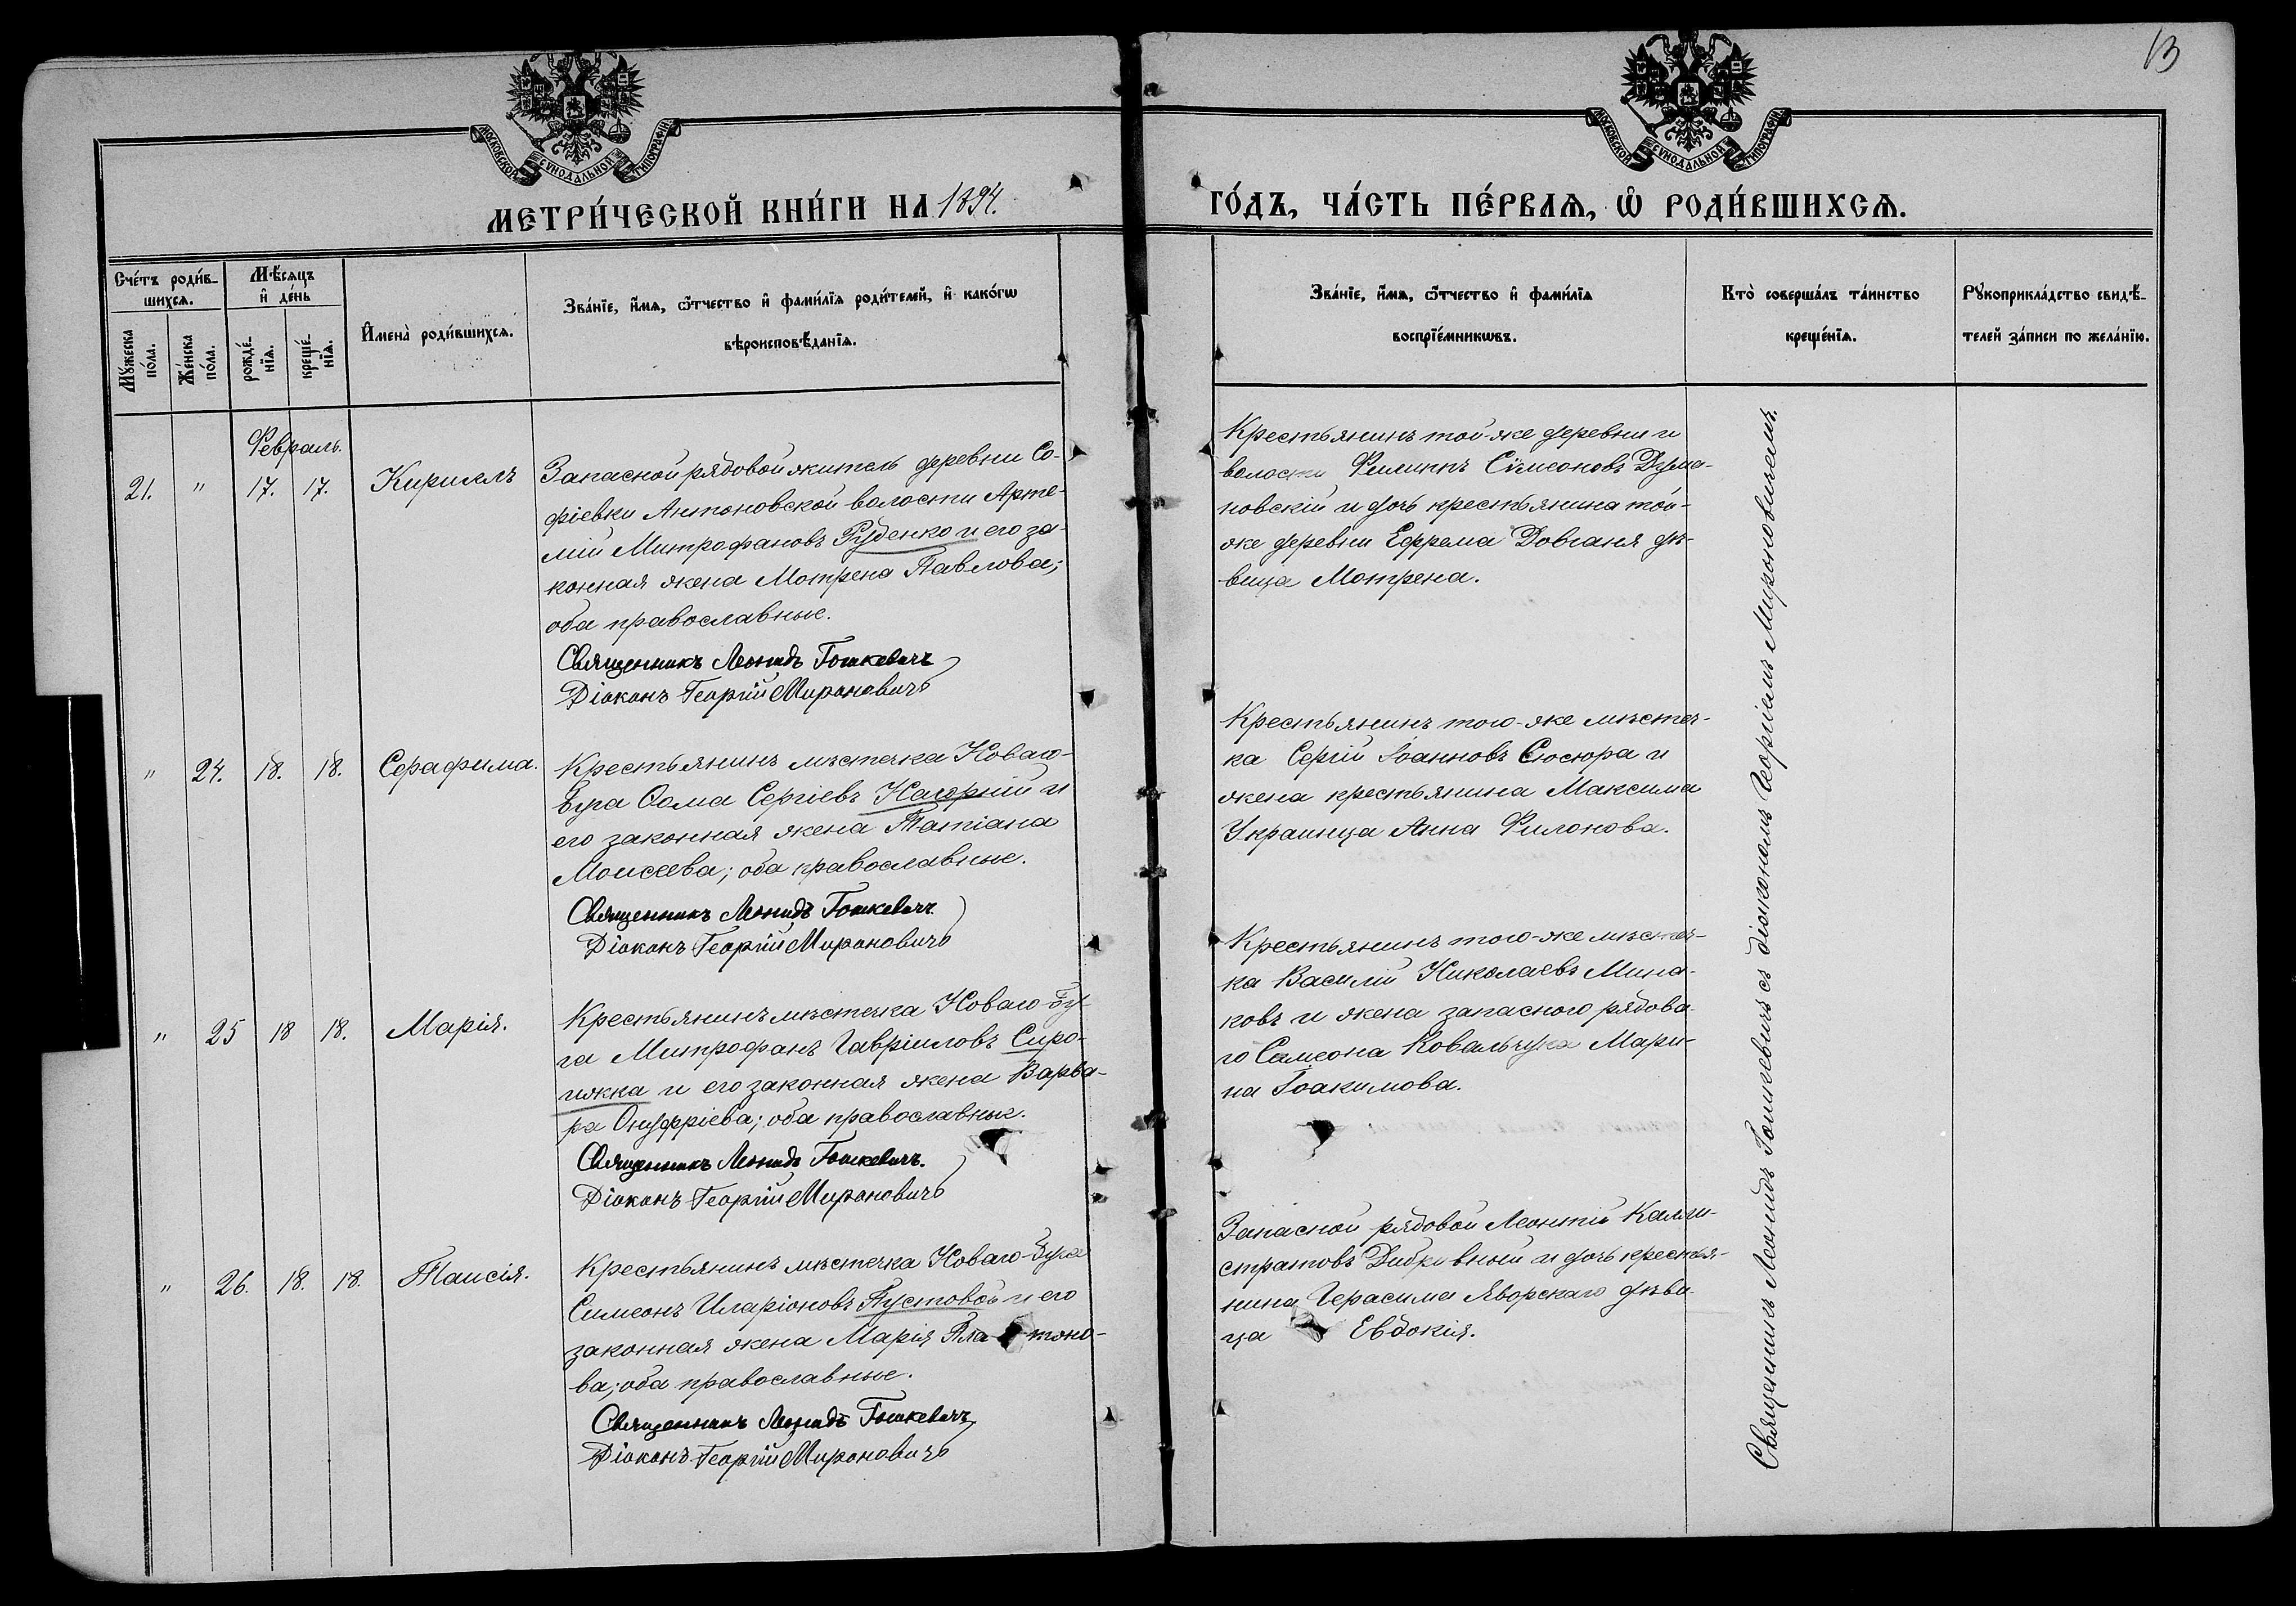 13
МОСКОВСКОЙ СУНОДАЛЬНОЙ ТИПОГРАФІИ
МОСКОВСКОЙ СУНОДАЛЬНОЙ ТИПОГРАФІИ
МЕТРИ́ЧЕСКОЙ КНИ́ГИ НА 1894.
ГО́ДЪ, ЧА́СТЬ ПЕ́РВАѦ, Ѡ РОДИ́ВШИХСѦ.
Сче́тъ роди́в-
шихсѧ.
Мѣ́сѧцъ
и де́нь
Мꙋ́жеска
по́ла.
Же́нска
по́ла.
рожде́-
нїѧ.
креще́-
нїѧ.
Имена̀ роди́вшихсѧ.
Зва́нїе, и́мѧ, ѻ́тчество и фами́лїѧ роди́телей, и како́гѡ
вѣроисповѣ́данїѧ.
Зва́нїе, и́мѧ, ѻ́тчество и фами́лїѧ
воспрїе́мникѡвъ.
Кто̀ соверша́лъ та́инство
креще́нїѧ.
Рꙋкоприкла́дство свидѣ́-
телей за́писи по жела́нїю.
Февраль.
21. " 17. 17. Кириллъ
Запасной рядовой житель деревни Со-
фіевки Антоновской волости Арте-
мій Митрофановъ Руденко и его за-
конная жена Мотрена Павлова;
оба православные.
Священникъ Леонидъ Гошкевичъ
Діаконъ Георгій Мироновичъ
Крестьянинъ той-же деревни и
волости Филиппъ Сімеоновъ Дума-
новскій и дочь крестьянина той-
же деревни Ефрема Довганя дѣ-
вица Мотрена.
" 24. 18. 18. Серафима.
Крестьянинъ мѣстечка Новаго-
Буга Ѳома Сергіевъ Нагорній и
его законная жена Татіана
Моисеева; оба православные.
Священникъ Леонидъ Гошкевичъ.
Діаконъ Георгій Мироновичъ
Крестьянинъ того-же мѣстеч-
ка Сергій Іоанновъ Сюсюра и
жена крестьянина Максима
Украинца Анна Филонова.
" 25 18 18. Марія.
Крестьянинъ мѣстечка Новаго-Бу-
га Митрофанъ Гавріиловъ Сиро-
ижка и его законная жена Варва-
ра Онуфріева; оба православные.
Священникъ Леонидъ Гошкевичъ.
Діаконъ Георгій Мироновичъ
Крестьянинъ того-же мѣстеч-
ка Василій Николаевъ Мина-
ковъ и жена запасного рядова-
го Симеона Ковальчука Мари-
на Іоакимова.
" 26. 18. 18. Таисія.
Крестьянинъ мѣстечка Новаго-Буга
Симеонъ Иларіоновъ Пустовой и его
законная жена Марія Пла-тоно-
ва; оба православные.
Священникъ Леонидъ Гошкевичъ
Діаконъ Георгій Мироновичъ
Запасной рядовой Леонтій Калли-
стратовъ Дибривный и дочь крестья-
нина Герасима Яворскаго дѣви-
ца Евдокія.
Священникъ Леонидъ Гошкевичъ съ діакономъ Георгіемъ Мироновичемъ.